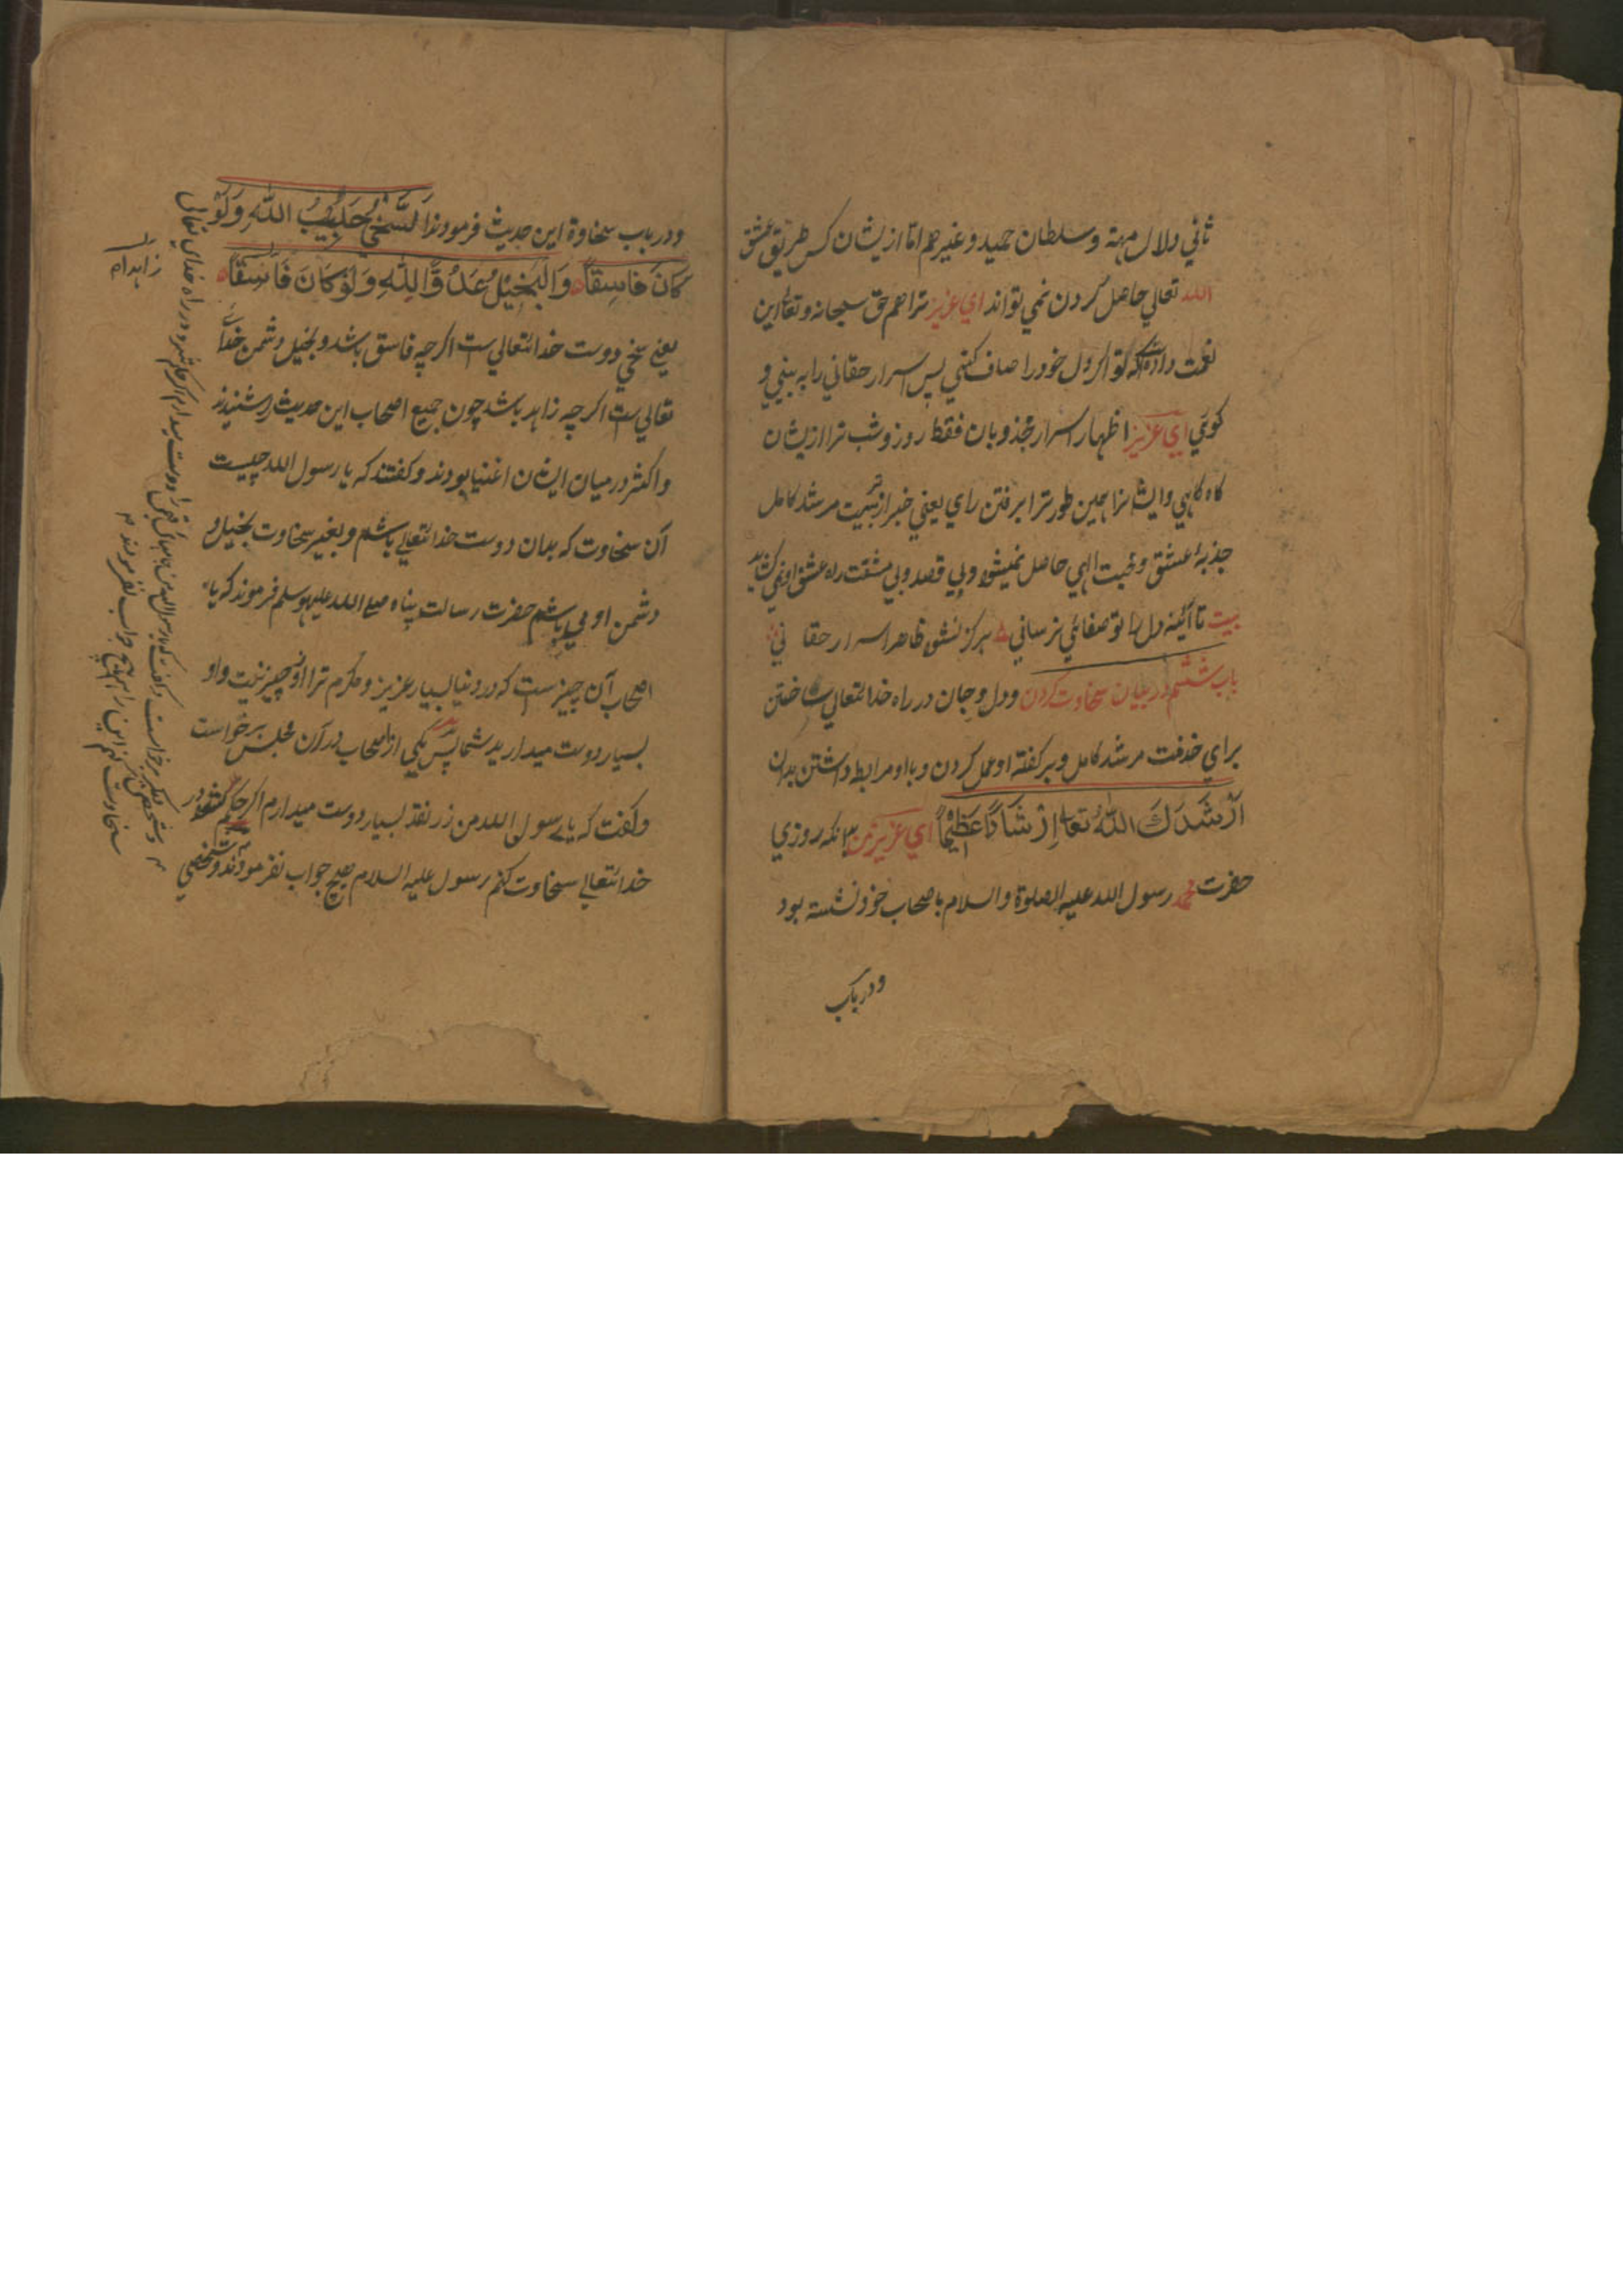 ثاني ولال مهته وسلطان حميد وغيرهم اما ازيشان كس طريق عشق
الله تعالي حاصل كردن نمي تواند اي عزيز ترا هم حق سبحانه وتعالي اين
نعمت داده كه تو اكر دل خود را صاف كني پس اسرار حقاني را به بيني و
كوئي اي عزيز اظهار اسرار مجذوبان فقط روز وشب ترا ازيشان
كاه كاهي وايشانرا همين طور ترا برفتن راي يعني خبر از تربيت مرشد كامل
جذبه عشق ومحبت الهي حاصل نميشود وبي قصد وبي مشقت راه عشق او نمي كشايد
بيت تا آئينه دل را تو صفائي نرساني هركز نشود ظاهر اسرار حقاني
باب ششم در بيان سخاوت كردن ودل وجان در راه خدا تعالي ساختن
براي خدمت مرشد كامل وبر كفته او عمل كردن وبا او مرابطه داشتن بدان
ارشدك الله تعالي ارشادا عظيما اي عزيز من آنكه روزي
حضرت محمد رسول الله عليه الصلوة والسلام با صحاب خود نشسته بود
ودر باب
ودر باب سخاوة اين حديث فرمودند اَلسَّخِيُّ حَبِيْبُ اللهِ وَلَوْ
كَانَ فَاسِقًا وَالْبَخِيْلُ عَدُوُّ اللهِ وَلَوْ كَانَ فَاسِقًا
يعني سخي دوست خدا تعالي ست اكرچه فاسق باشد وبخيل دشمن خداي
تعالي ست اكرچه زاهد باشد چون جميع اصحاب اين حديث را شنيدند
واكثر در ميان ايشان اغنيا بودند وكفتند كه يا رسول الله چيست
آن سخاوت كه بدان دوست خدا تعالي باشم وبغير سخاوت بخيل و
دشمن او مي باشم حضرت رسالت پناه صلي الله عليه وسلم فرموند كه يا
اصحاب آن چيز ست كه در دنيا بسيار عزيز ومكرم ترا ازو چيز نيست واو
بسيار دوست ميداريد شما پس يكي از اصحاب در آن مجلس برخواست
وكفت كه يا رسول الله من زر نقد بسيار دوست ميدارم اكر حكم شود در
خدا تعالي سخاوت كنم رسول عليه السلام هيچ جواب نفرمودند وشخصي
زاهدا
ديكر برخواست وكفت كه يا رسول الله من را دوست ميدارم اكر حكم شود در راه خداي تعالي
سخاوت كنم اين را هم هيچ جواب نفرمودند